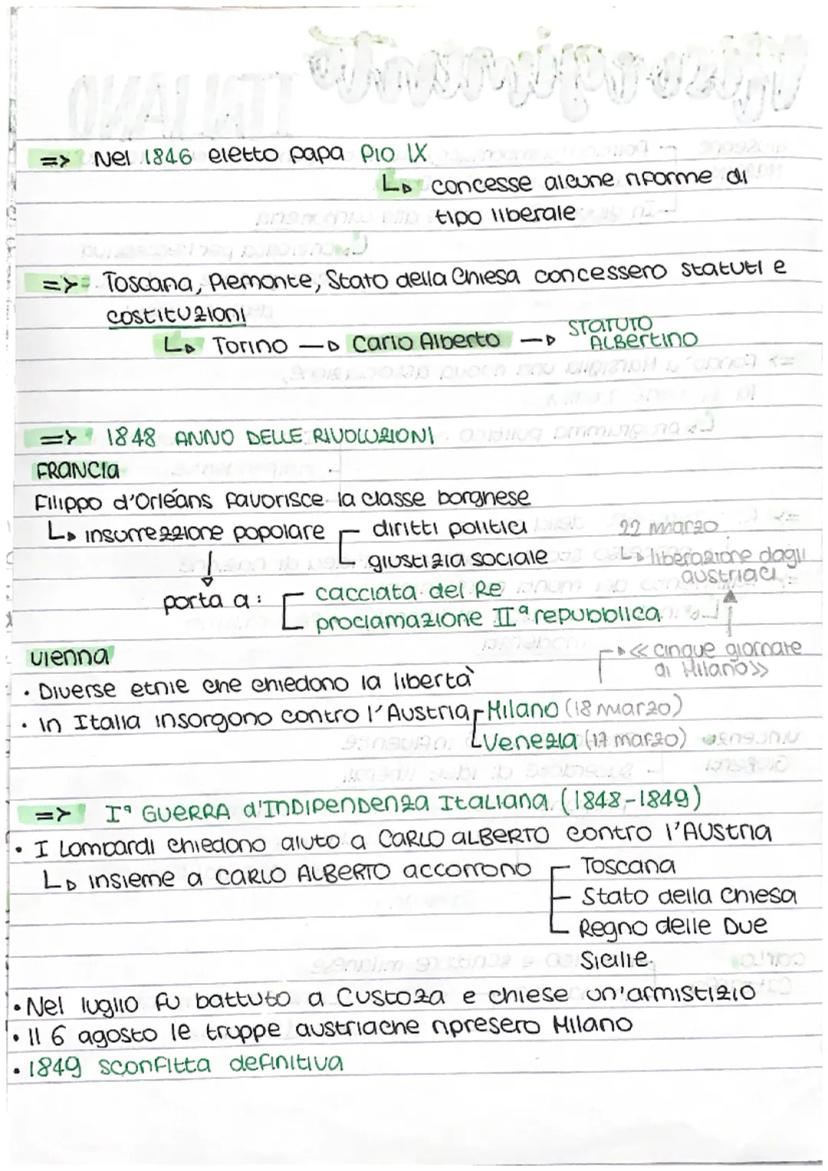 => Nel 1846 eletto papa PIO IX
↳ concesse alcune riforme di
tipo liberale
=> Toscana, Piemonte, Stato della Chiesa concessero statuti e
costituzioni
↳ Torino → Carlo Alberto → STATUTO
ALBERTINO
=> 1848 ANNO DELLE RIVOLUZIONI
FRANCIA
Filippo d'Orléans favorisce la classe borghese
↳ insurrezione popolare diritti politici
giustizia sociale
22 marzo
↳ liberazione dagli
austriaci
porta a: cacciata del Re
proclamazione IIª repubblica
<<cinque giornate
di Milano>>
Vienna
• Diverse etnie che chiedono la libertà
• In Italia insorgono contro l'Austria Milano (18 marzo)
Venezia (17 marzo)
=> Iª GUERRA d'INDIPENDENZA ITALIANA (1848-1849)
• I Lombardi chiedono aiuto a CARLO ALBERTO contro l'Austria
↳ insieme a CARLO ALBERTO accorrono Toscana
Stato della Chiesa
Regno delle Due
Sicilie.
• Nel luglio fu battuto a Custoza e chiese un'armistizio
• Il 6 agosto le truppe austriache ripresero Milano
• 1849 sconfitta definitiva